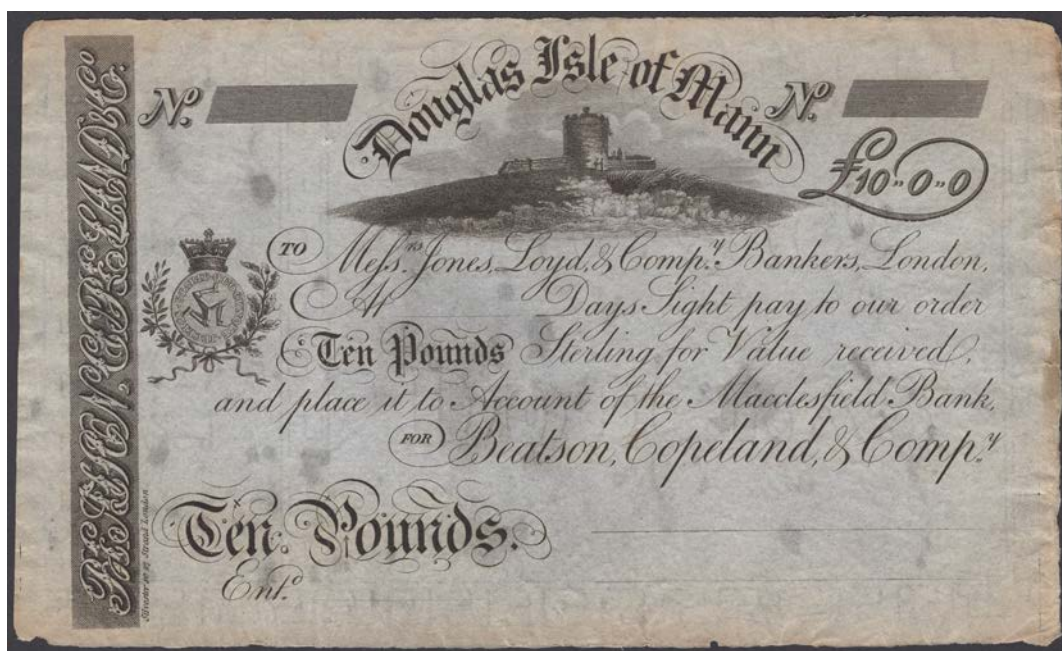 BEATSON, COPELAND & Co.
No.
Douglas Isle of Mann
No.
£10"0"0
TO Messrs. Jones, Loyd, & Compy. Bankers, London,
At Days Sight pay to our order
Ten Pounds Sterling for Value received,
and place it to Account of the Macclesfield Bank,
FOR Beatson, Copeland, & Compy.
Ten Pounds.
Entd.
Strand London